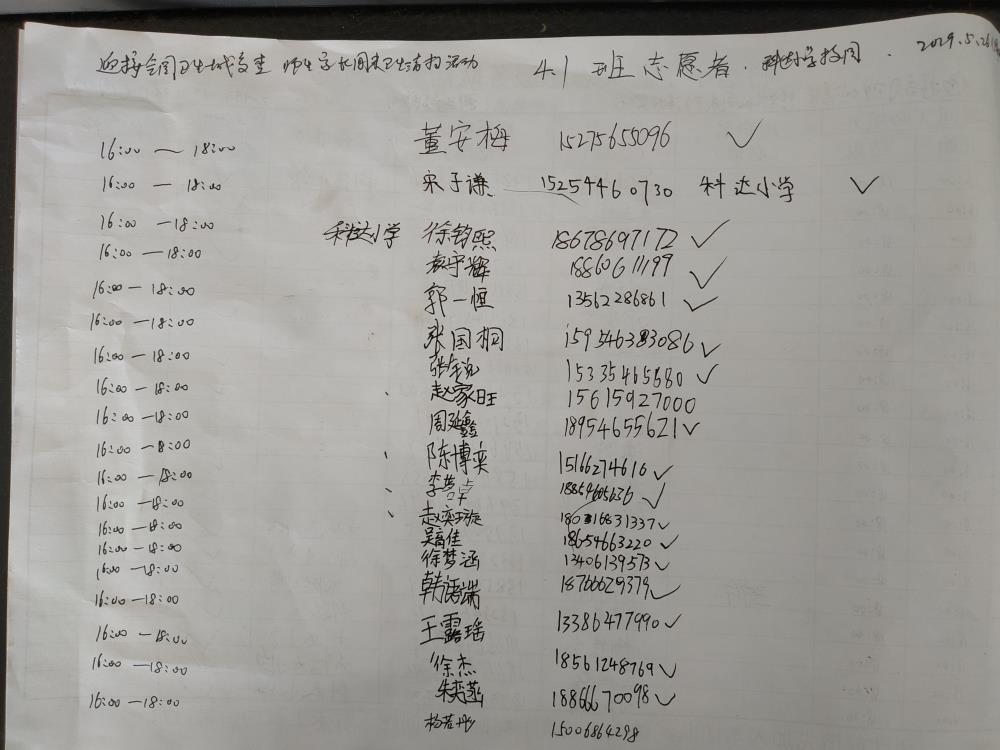 迎接全国卫生城复查 师生家长周末卫生清扫活动 4.1 班志愿者. 科达小学校园. 2029.5.26
16:00 — 18:00 董安梅 15275655096 ✓
16:00 — 18:00 宋子谦 15254460730 科达小学 ✓
16:00 — 18:00 科达小学 徐钧熙 18678697172 ✓
16:00 — 18:00 袁宇辉 18860611199 ✓
16:00 — 18:00 郭一恒 13562286861 ✓
16:00 — 18:00 张国桐 15954633086 ✓
16:00 — 18:00 张锐 15335465680 ✓
16:00 — 18:00 赵家旺 15615927000
16:00 — 18:00 周延鑫 18954655621 ✓
16:00 — 8:00 陈博奕 15166274616 ✓
16:00 — 18:00 李卓 18854605636 ✓
16:00 — 18:00 赵奕璇 180316831337 ✓
16:00 — 18:00 吴嘉佳 18654663220 ✓
16:00 — 18:00 徐梦涵 13406139573 ✓
16:00 — 18:00 韩语端 18766629379 ✓
16:00 — 18:00 王露瑶 13386477990 ✓
16:00 — 18:00 徐杰 18561248769 ✓
16:00 — 18:00 朱奕菡 18866670098 ✓
16:00 — 18:00 杨若彤 15006864298